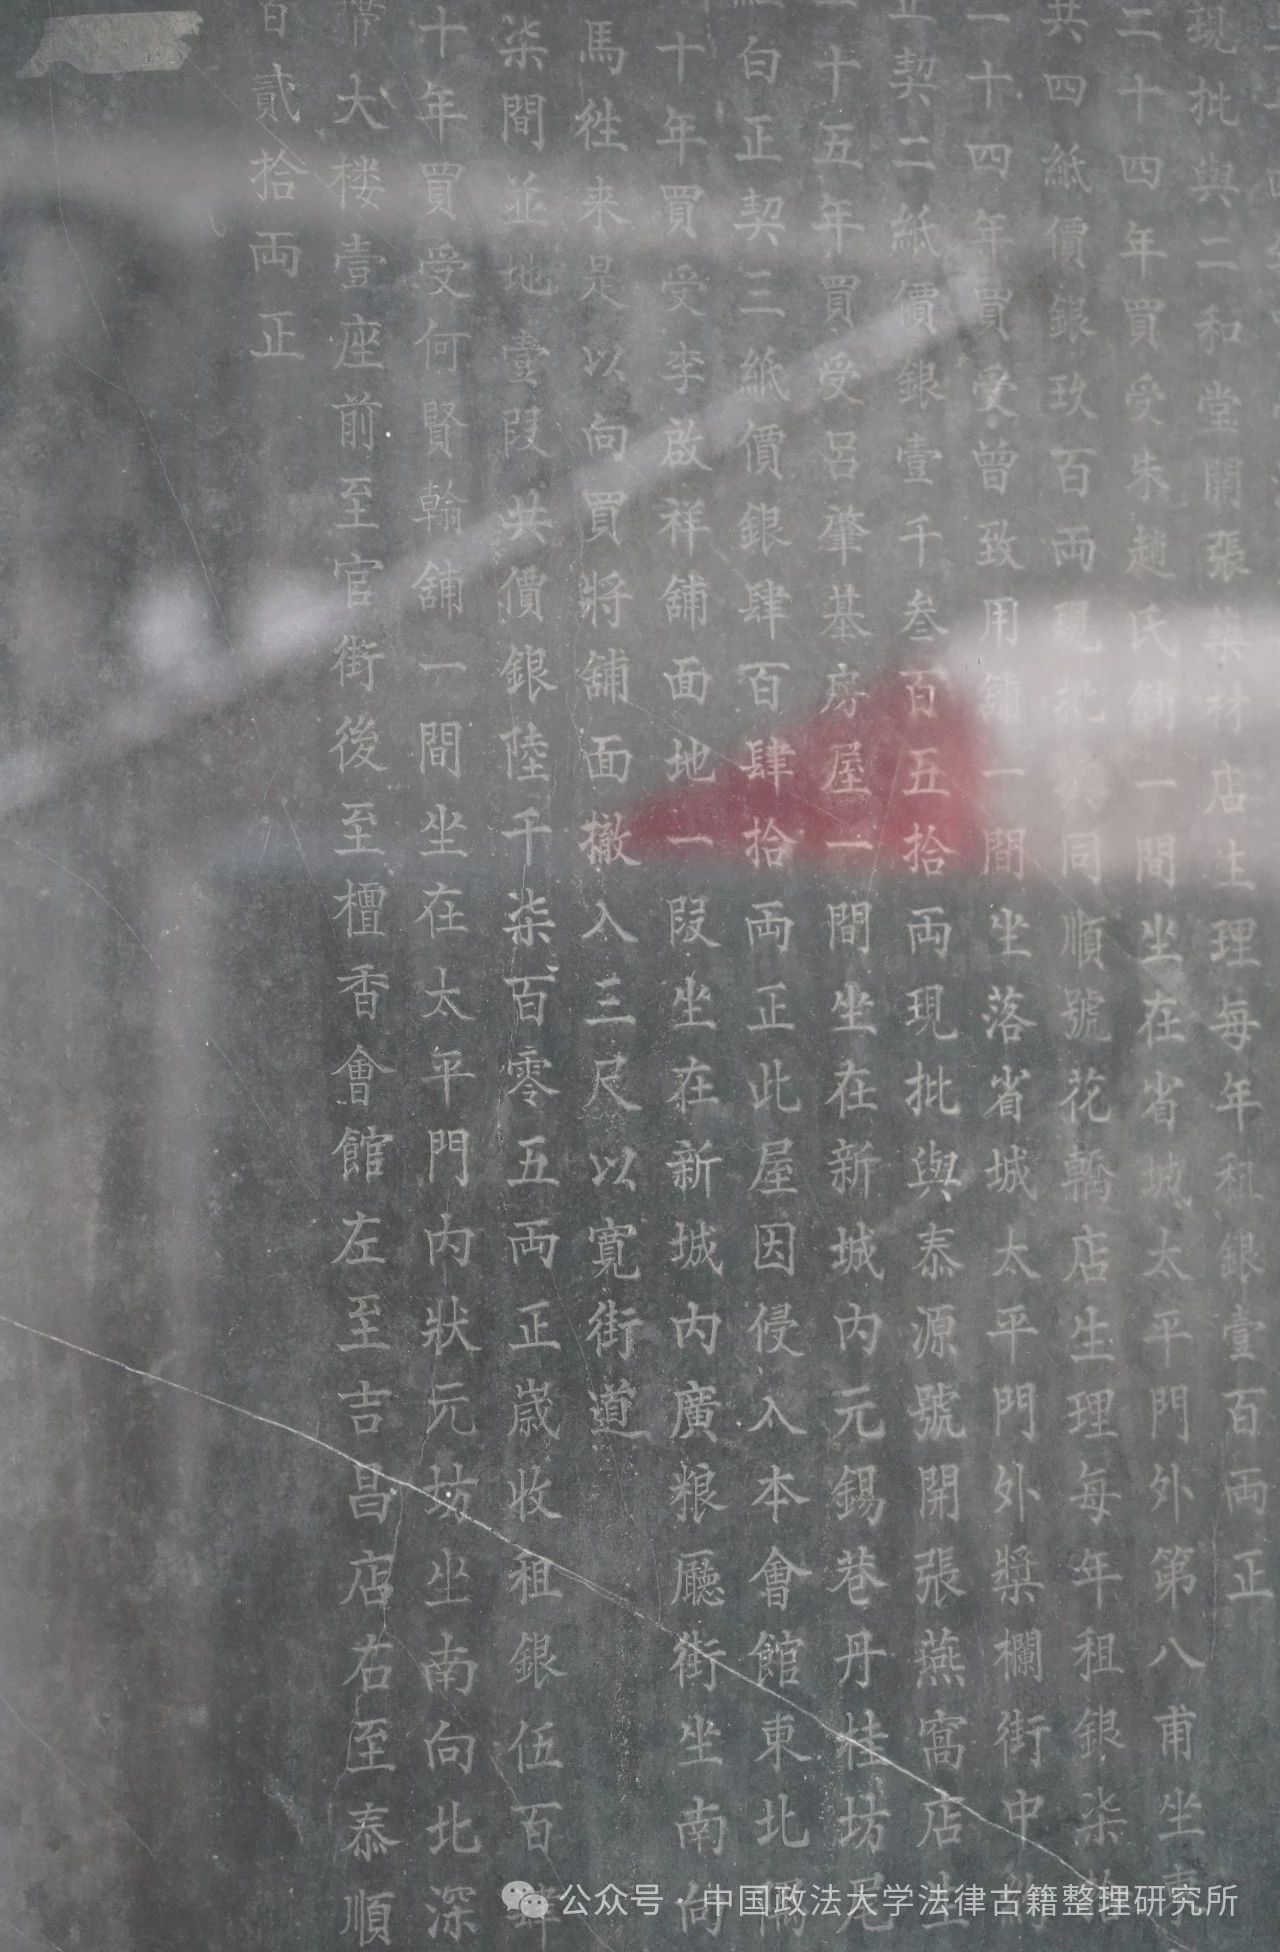 現批與二和堂開張藥材店生理每年租銀壹百両正
二十四年買受朱趙氏鋪一間坐在省城太平門外第八甫坐東
共四紙價銀玖百両現批與同順號花轎店生理每年租銀柒拾
一十四年買受曾致用鋪一間坐落省城太平門外槳欄街中約
正契二紙價銀壹千叁百五拾両現批與泰源號開張燕窩店生
二十五年買受呂肇基房屋一間坐在新城内元錫巷丹桂坊尾
白正契三紙價銀肆百肆拾両正此屋因侵入本會館東北隅
十年買受李啟祥舖面地一叚坐在新城内廣粮廳街坐南向
馬徃来是以向買將舖面撤入三尺以寛街道
柒間並地壹叚共價銀陸千柒百零五両正歲收租銀伍百肆
十年買受何賢翰舖一間坐在太平門内狀元坊坐南向北深
帶大楼壹座前至官街後至檀香會館左至吉昌店右至泰順
百貳拾両正
公众号 · 中国政法大学法律古籍整理研究所